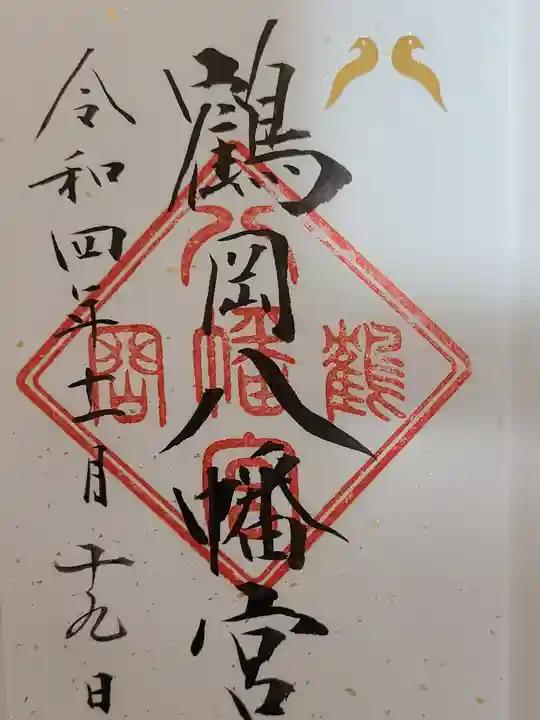 鶴岡八幡宮
令和四年十一月十九日
鶴 八幡宮 岡